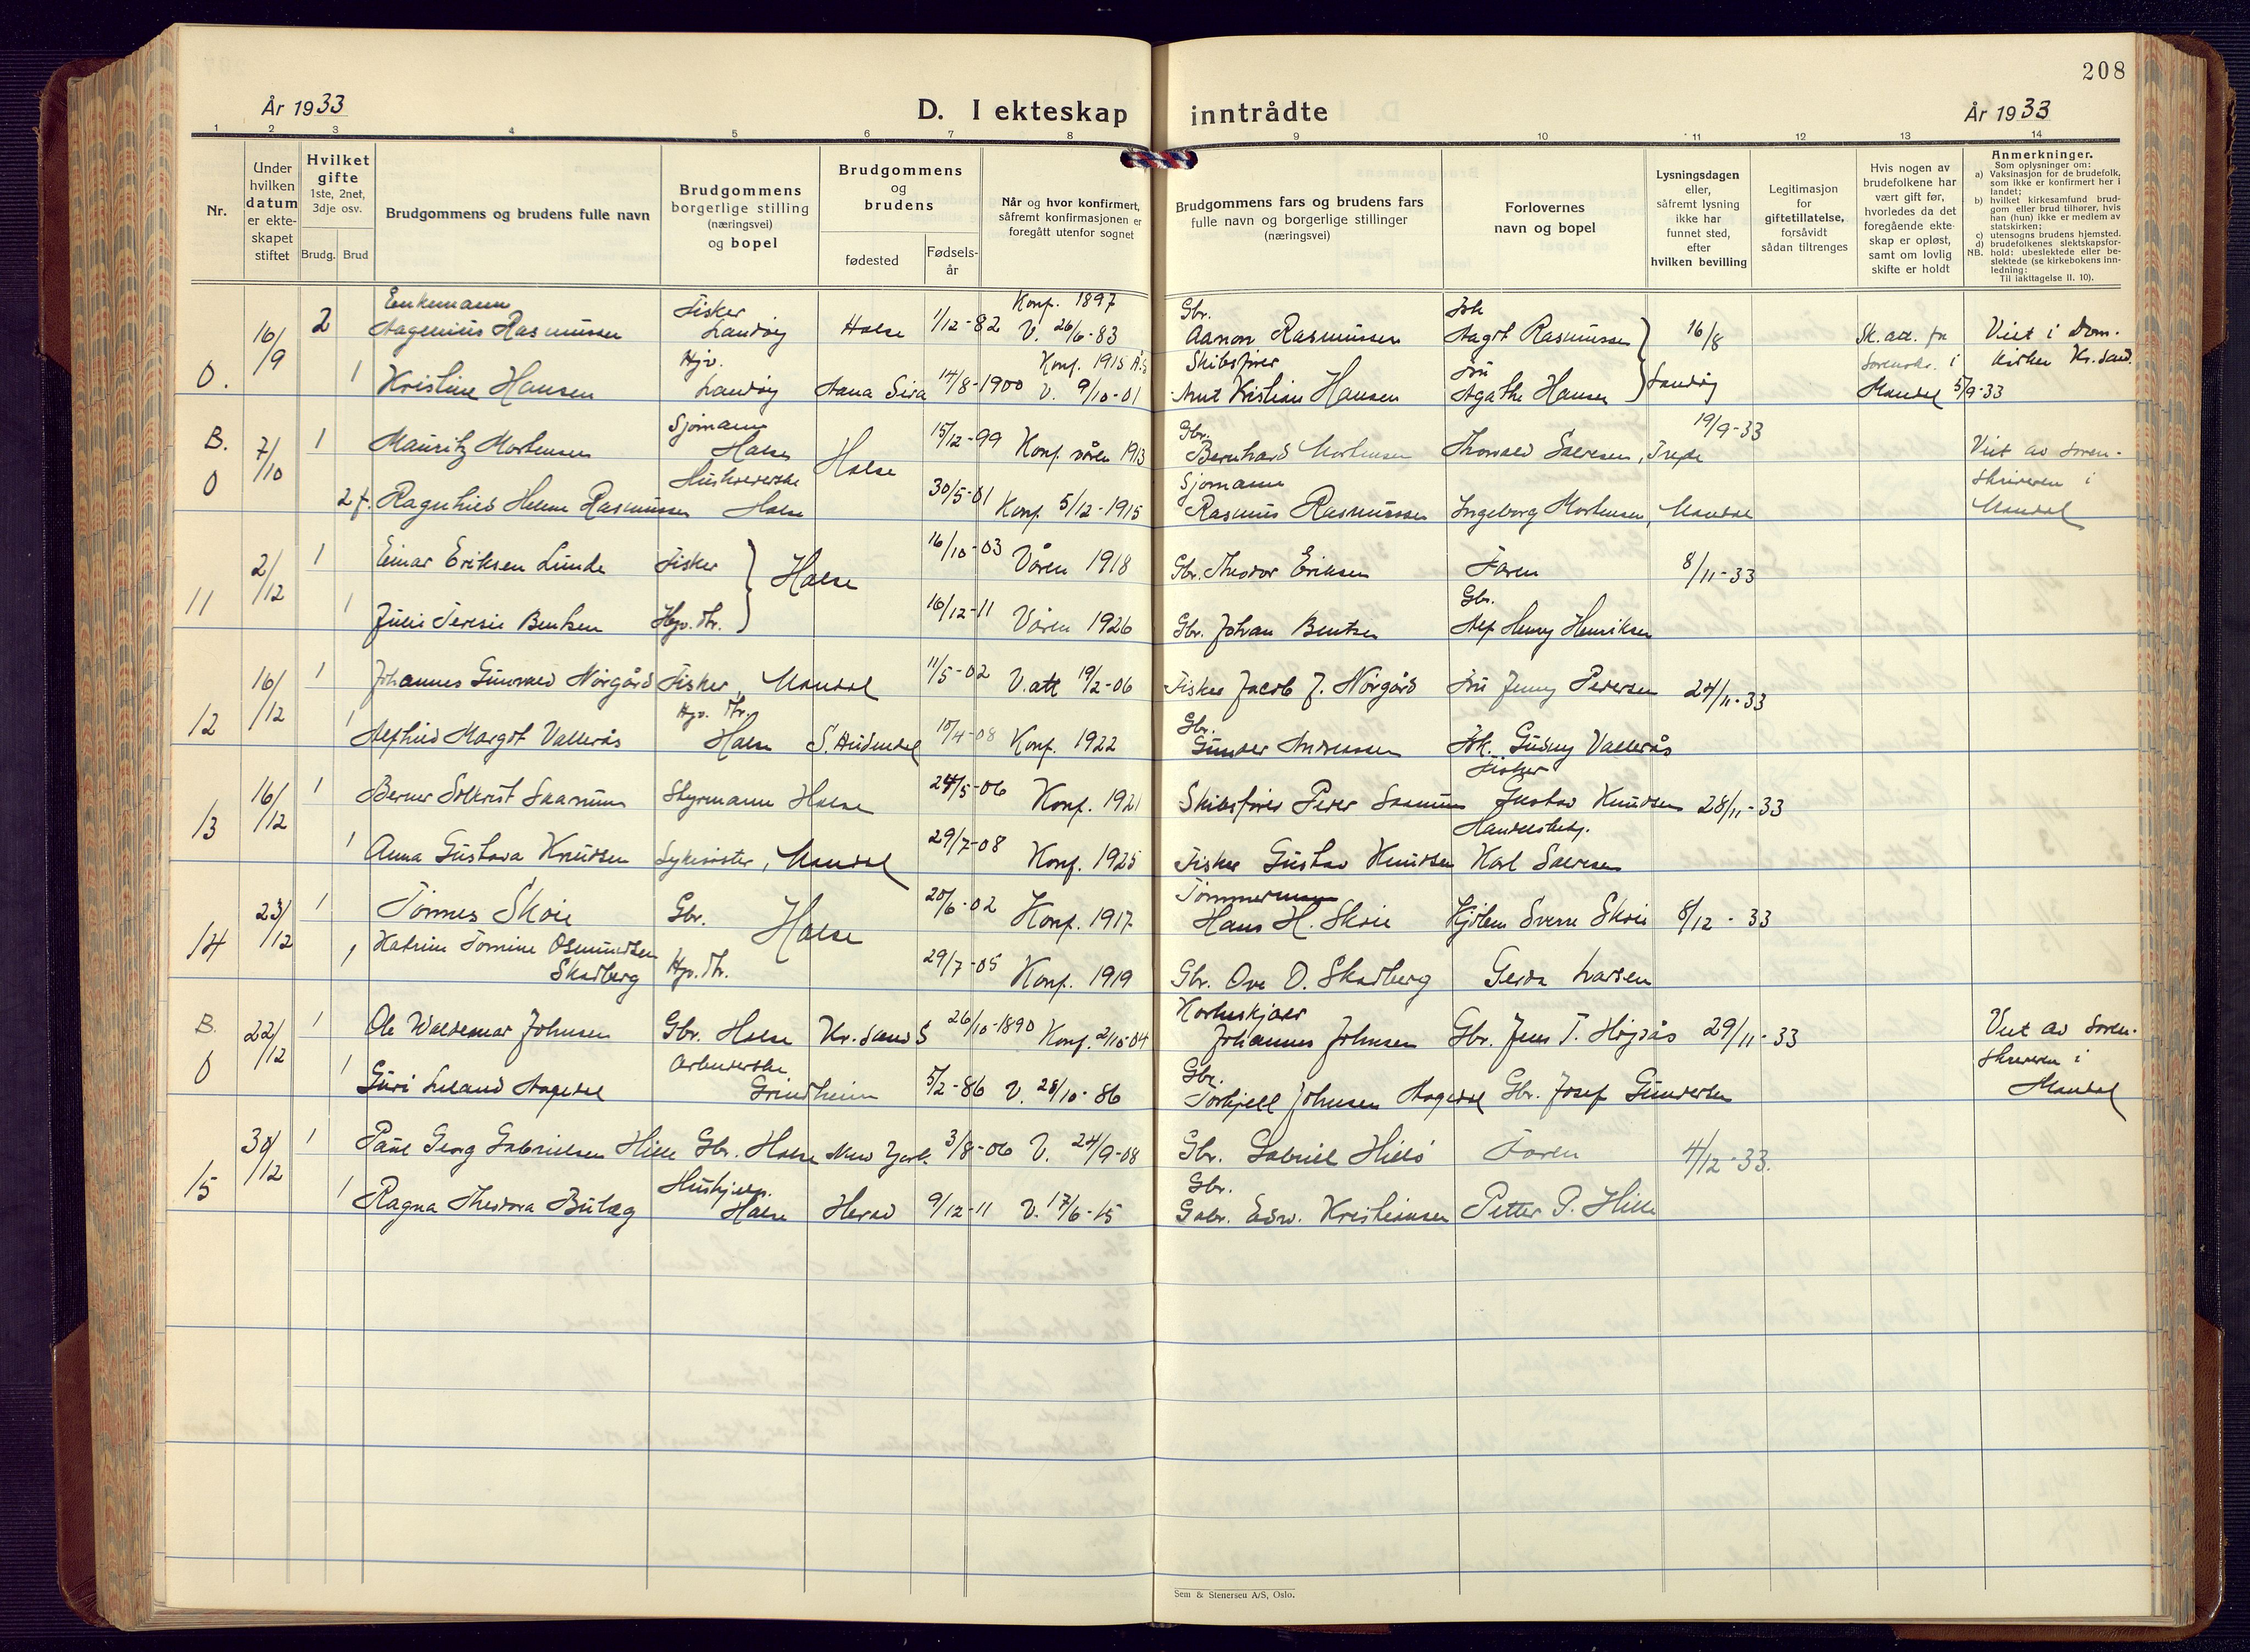 208
År 1933
D. I ekteskap inntrådte
År 1933
1 2 3 4 5 6 7 8 9 10 11 12 13 14
Nr.
Under hvilken datum er ekteskapet stiftet
Hvilket gifte 1ste, 2net, 3dje osv.
Brudg. Brud
Brudgommens og brudens fulle navn
Brudgommens borgerlige stilling (næringsvei) og bopel
Brudgommens og brudens
fødested
Fødselsår
Når og hvor konfirmert, såfremt konfirmasjonen er foregått utenfor sognet
Brudgommens fars og brudens fars fulle navn og borgerlige stillinger (næringsvei)
Forlovernes navn og bopel
Lysningsdagen eller, såfremt lysning ikke har funnet sted, efter hvilken bevilling
Legitimasjon for giftetillatelse, forsåvidt sådan tiltrenges
Hvis nogen av brudefolkene har vært gift før, hvorledes da det foregående ekteskap er opløst, samt om lovlig skifte er holdt
Anmerkninger.
Som oplysninger om:
a) Vaksinasjon for de brudefolk, som ikke er konfirmert her i landet;
b) hvilket kirkesamfund brudgom eller brud tilhører, hvis han (hun) ikke er medlem av statskirken;
c) utensogns brudens hjemsted.
d) brudefolkenes slektskapsforhold: ubeslektede eller beslektede (se kirkebokens innledning:
NB.
Til iakttagelse II. 10).
Enkemann Fisker Konf. 1897 Gbr.
16/9 2 Rasmussen Landøy Halse 1/12-82 V. 26/6-83 Aanon Rasmussen Aagot Rasmussen 16/8 Viet i Dom-
Hjv. Konf. 1915 Skibsfører Fru kirken Kr.sand.
O. 1 Kristine Hansen Landøy Aana Sira 14/8-1900 V. 9/10-01 Kristian Hansen Agathe Hansen Landøy Mandal 5/9-33
Sjømann Gbr. 19/9-33
B. 7/10 1 Mauritz Mortensen Halse Halse 15/12-99 Konf. våren 1913 Bernhard Mortensen Thorvald Salvesen, Viet av soren-
Sjømann skriveren i
O 2 f. Ragnhild Helene Rasmussen Halse 30/5-01 Konf. 5/12-1915 Rasmus Rasmussen Ingeborg Mortensen, Mandal Mandal
2/12 1 Einar Eriksen Lunde Fisker Halse 16/10-03 Våren 1918 Gbr. Theodor Eriksen Faren 8/11-33
11 1 Julie Teresie Bentsen Hjv. Dtr. 16/12-11 Våren 1926 Gbr. Johan Bentsen Gbr. Alf Henry Henriksen
16/12 1 Johannes Gunvald Nørgård Fisker, Mandal 11/5-02 V.att 19/2-06 Fisker Jacob J. Nørgård Fru Jenny Pedersen 24/11-33
12 1 Alfhild Margot Vallerås Hjv. Dtr. Halse S. Audnedal 10/4-08 Konf. 1922 Gbr. Gunder Andreassen Frk. Gudny Vallerås
16/12 1 Berner Saanum Styrmann Halse 24/5-06 Konf. 1921 Skibsfører Peder Saanum Fisker Gustav Knudsen 28/11-33
13 1 Anna Gustava Knudsen Sykesøster, Mandal 29/7-08 Konf. 1925 Fisker Gustav Knudsen Handelsbetj. Karl Salvesen
23/12 1 Tønnes Skoie Gbr. Halse 20/6-02 Konf. 1917 Tømmermann Hans H. Skoie Sverre Skoie 8/12-33
14 1 Katrine Tomine Osmundsen Skadberg Hjv. Dtr. 29/7-05 Konf. 1919 Gbr. Ove O. Skadberg Gerda Larsen
B. 22/12 1 Ole Waldemar Johnsen Gbr. Halse Kr.sand S 26/10-1890 Konf. 2/10-04 Johannes Johnsen Gbr. Jens T. Høydås 29/11-33 Viet av soren-
skriveren i
O 1 Guri Aagedal Arbeiderske Grindheim 5/2-86 V. 28/10-86 Gbr. Torkjell Johnsen Aagedal Gbr. Josef Gundersen Mandal
30/12 1 Paul Georg Gabrielsen Hille Gbr. Halse New York 3/8-06 V. 24/9-08 Gbr. Gabriel Hille Faren 4/12-33.
15 1 Ragna Theodora Bulæg Hushjelp. Halse Herad 9/12-11 V. 17/6-15 Gbr. Gabr. Edw. Kristiansen Petter P. Hille
Sem & Stenersen A/S, Oslo.